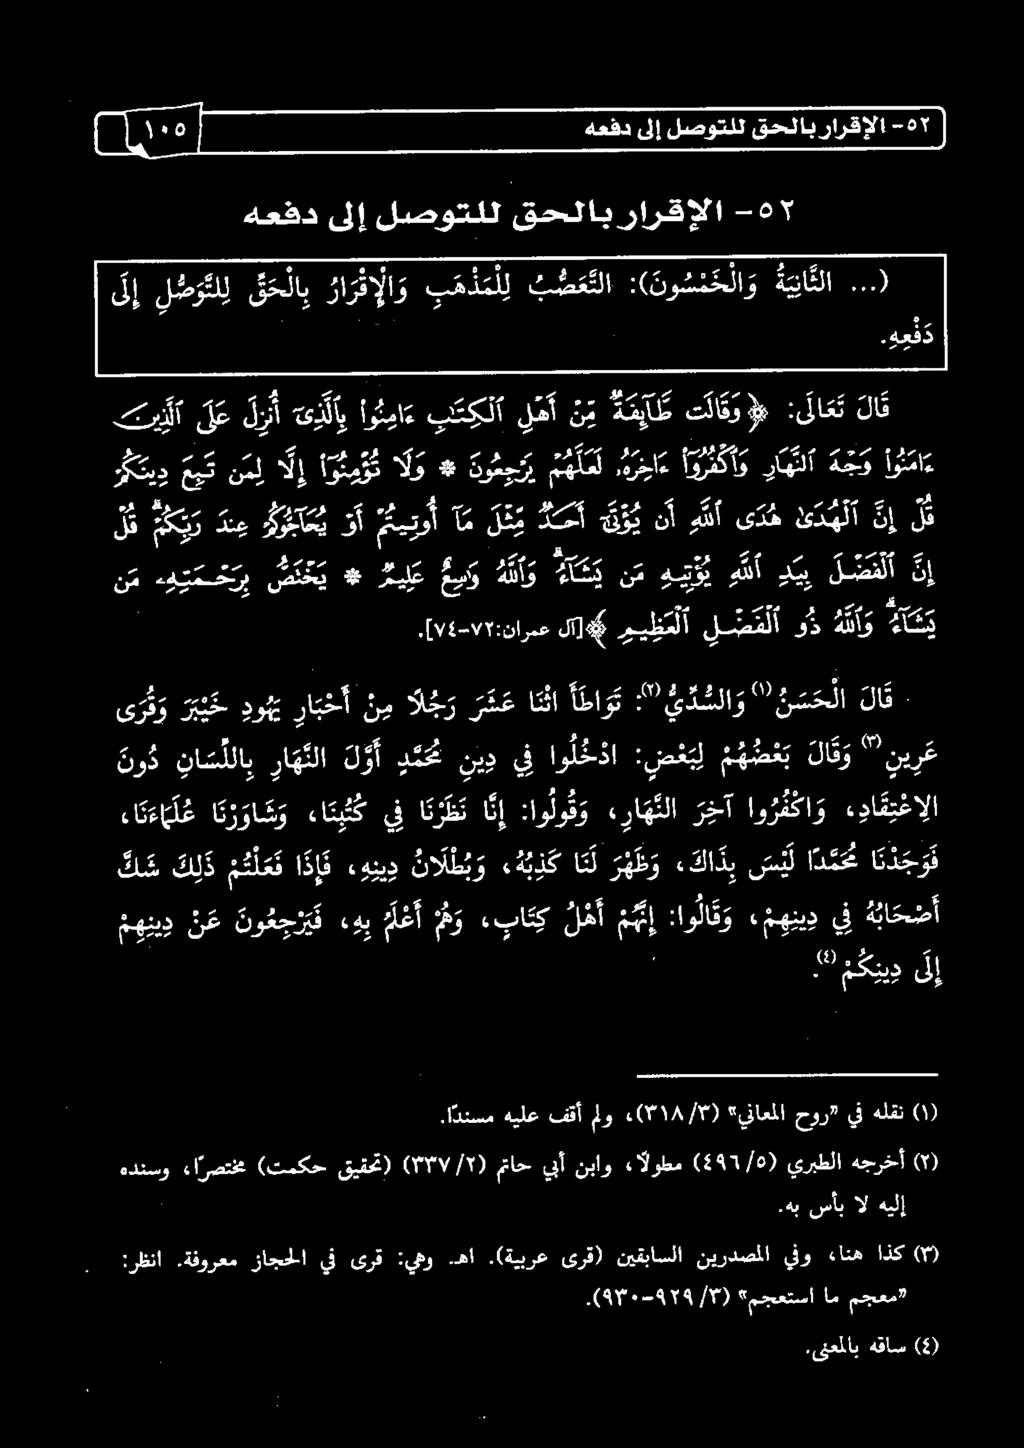 ٥٢- الإقرار بالحق للتوصل إلى دفعه ١٠٥
٥٢- الإقرار بالحق للتوصل إلى دفعه
(... الثَّانِيَةُ وَالْخَمْسُونَ): التَّعَصُّبُ لِلْمَذْهَبِ وَالْإِقْرَارُ بِالْحَقِّ لِلتَّوَصُّلِ إِلَى
دَفْعِهِ.
قَالَ تَعَالَى: ﴿وَقَالَت طَّآئِفَةٌ مِّنْ أَهْلِ ٱلْكِتَٰبِ ءَامِنُوا۟ بِٱلَّذِىٓ أُنزِلَ عَلَى ٱلَّذِينَ
ءَامَنُوا۟ وَجْهَ ٱلنَّهَارِ وَٱكْفُرُوٓا۟ ءَاخِرَهُۥ لَعَلَّهُمْ يَرْجِعُونَ * وَلَا تُؤْمِنُوٓا۟ إِلَّا لِمَن تَبِعَ دِينَكُمْ
قُلْ إِنَّ ٱلْهُدَىٰ هُدَى ٱللَّهِ أَن يُؤْتَىٰٓ أَحَدٌ مِّثْلَ مَآ أُوتِيتُمْ أَوْ يُحَآجُّوكُمْ عِندَ رَبِّكُمْ ۗ قُلْ
إِنَّ ٱلْفَضْلَ بِيَدِ ٱللَّهِ يُؤْتِيهِ مَن يَشَآءُ ۗ وَٱللَّهُ وَٰسِعٌ عَلِيمٌ * يَخْتَصُّ بِرَحْمَتِهِۦ مَن
يَشَآءُ ۗ وَٱللَّهُ ذُو ٱلْفَضْلِ ٱلْعَظِيمِ﴾ [آل عمران:٧٢-٧٤].
قَالَ الْحَسَنُ(١) وَالسُّدِّيُّ(٢): تَوَاطَأَ اثْنَا عَشَرَ رَجُلًا مِنْ أَحْبَارِ يَهُودِ خَيْبَرَ وَقُرَى
عَرِينٍ(٣) وَقَالَ بَعْضُهُمْ لِبَعْضٍ: ادْخُلُوا فِي دِينِ مُحَمَّدٍ أَوَّلَ النَّهَارِ بِاللِّسَانِ دُونَ
الِاعْتِقَادِ، وَاكْفُرُوا آخِرَ النَّهَارِ، وَقُولُوا: إِنَّا نَظَرْنَا فِي كُتُبِنَا، وَشَاوَرْنَا عُلَمَاءَنَا،
فَوَجَدْنَا مُحَمَّدًا لَيْسَ بِذَاكَ، وَظَهَرَ لَنَا كَذِبُهُ، وَبُطْلَانُ دِينِهِ، فَإِذَا فَعَلْتُمْ ذَلِكَ شَكَّ
أَصْحَابُهُ فِي دِينِهِمْ، وَقَالُوا: إِنَّهُمْ أَهْلُ كِتَابٍ، وَهُمْ أَعْلَمُ بِهِ، فَيَرْجِعُونَ عَنْ دِينِهِمْ
إِلَى دِينِكُمْ(٤).
(١) نقله في «روح المعاني» (٣١٨/٣)، ولم أقف عليه مسندًا.
(٢) أخرجه الطبري (٤٩٦/٥) مطولًا، وابن أبي حاتم (٣٣٧/٢) (تحقيق حكمت) مختصرًا، وسنده
إليه لا بأس به.
(٣) كذا هنا، وفي المصدرين السابقين (قرى عربية). اهـ. وهي: قرى في الحجاز معروفة. انظر:
«معجم ما استعجم» (٩٢٩/٣-٩٣٠).
(٤) ساقه بالمعنى.